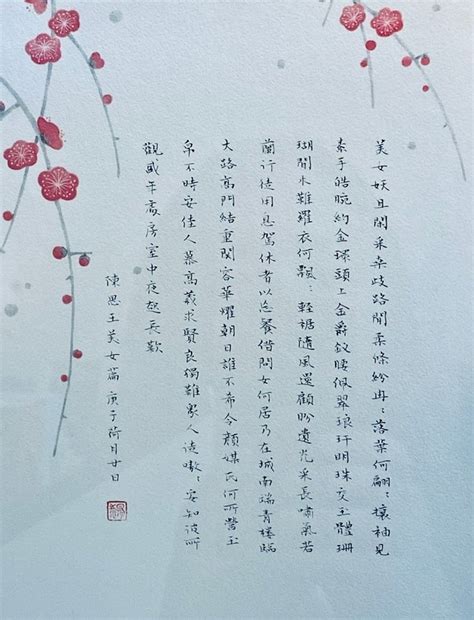 美女妖且閑采桑歧路間柔條紛冉：落葉何翩：攘袖見
素手皓腕約金環頭上金爵釵腰佩翠琅玕明珠交玉體珊
瑚間木難羅衣何飄：輕裾隨風還顧盼遺光采長嘯氣若
蘭行徒用息駕休者以忘餐借問女何居乃在城南端青樓臨
大路高門結重關容華耀朝日誰不希令顏媒氏何所營玉
帛不時安佳人慕高義求賢良獨難眾人徒嗷：安知彼所
觀盛年處房室中夜起長歎
陳思王美女篇庚子荷月廿日